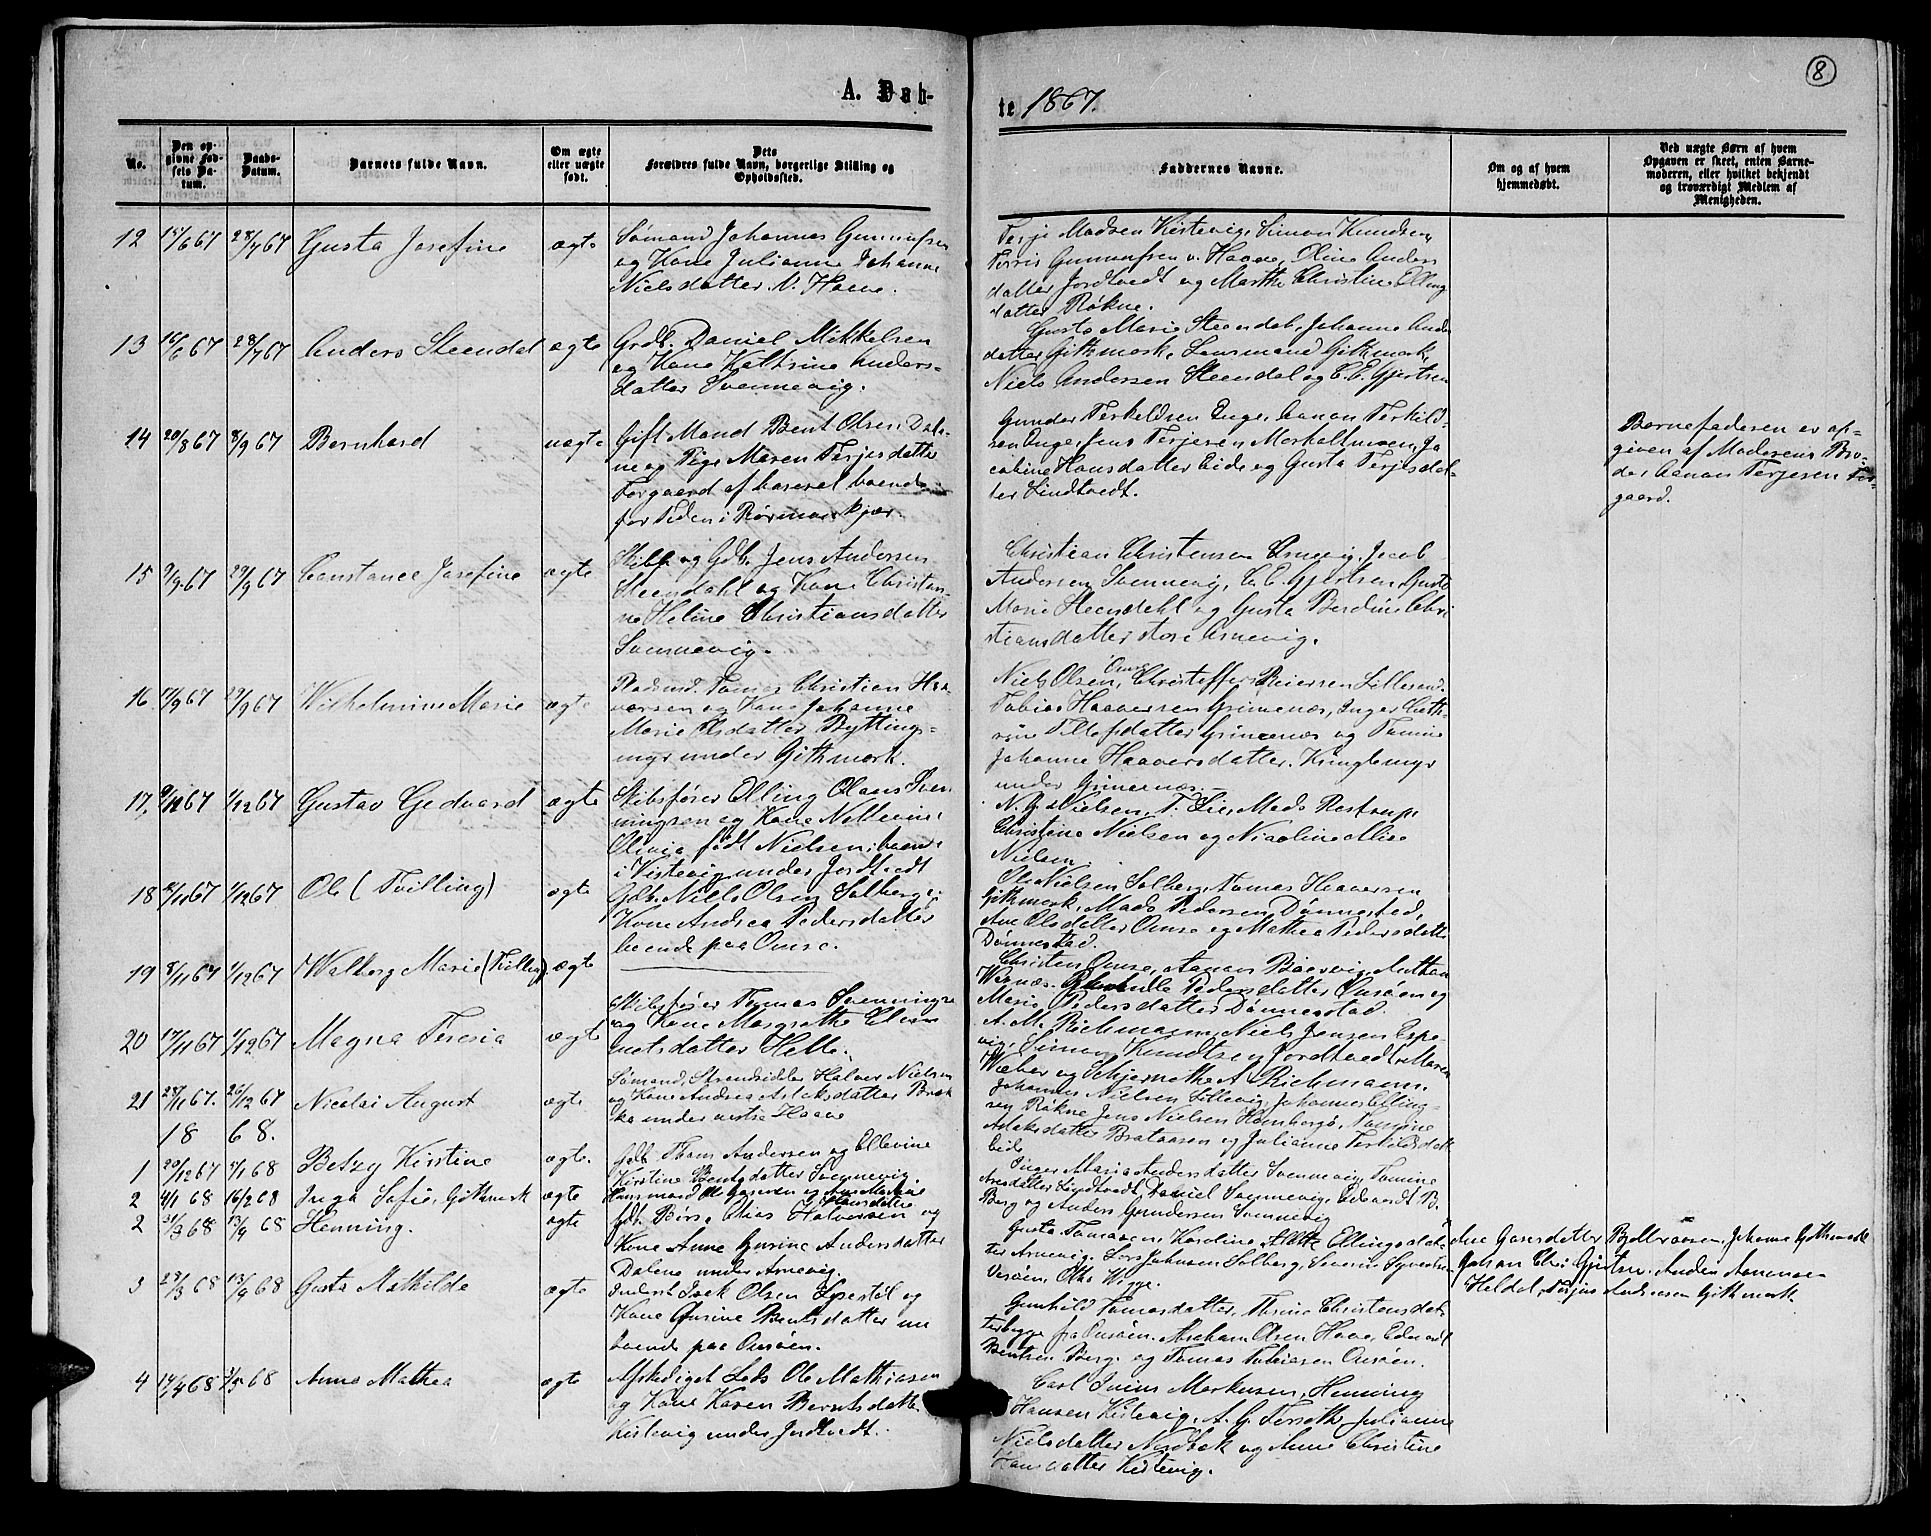 8
A. Døb-
te 1867.
No.
Den op-
givne Fød-
sels Da-
tum.
Daabs-
Datum.
Barnets fulde Navn.
Om ægte
eller uægte
født.
Dets
Forældres fulde Navn, borgerlige Stilling og
Opholdssted.
Faddernes Navne.
Om og af hvem
hjemmedøbt.
Ved uægte Børn af hvem
Opgaven er skeet, enten Barne-
moderen, eller hvilket bekjendt
og troværdigt Medlem af
Menigheden.
12 15/6 67 28/7 67 Gusta Josefine ægte
Sømand Johannes Gunnufsen
og Kone Juliane Johanne
Nielsdatter N. Haave.
Terje Madsen Kistevig, Simon Knudsen,
Terris Gunnufsen v. Haave, Oline Anders
datter Jordtvedt og Marthe Christine Elling
datter Røkne.
13 16/6 67 28/7 67 Anders Steendal ægte
Grdb. Daniel Mikkelsen
og Kone Kathrine Anders-
datter Svennevig.
Gusta Marie Steendal, Johanne Anders
datter Githmark, Lensmand Githmark,
Niels Andersen Steendal og C. E. Gjertsen
14 20/8 67 8/9 67 Bernhard uægte
Gift Mand Bent Olsen Dale-
ne og Pige Maren Terjesdatter
Torgaard af boende
for Tiden i Rørmaskjær.
Gunder Terkeldsen Enge, Aanon Terkild-
sen Enge, Jens Terjesen Morholtmoen, Ja
cobine Hansdatter Eide og Gusta Terjesdat-
ter Lindtvedt.
Barnefaderen er op-
given af Moderens Bro-
der Aanon Terjesen Tor-
gaard.
15 9/9 67 29/9 67 Constance Josefine ægte
Skibsf. og Gdb. Jens Andersen
Steendahl og Kone Christian-
ne Heline Christiansdatter
Svennevig.
Christian Christensen Arnevig, Jacob
Andersen Svennevig, C. E. Gjertsen, Gusta
Marie Steendahl og Gusta Berdine Chri
stiansdatter store Arnevig.
16 17/9 67 29/9 67 Wilhelmine Marie ægte
Pladsmd. Tomas Christian Haa-
versen og Kone Johanne
Marie Olsdatter Bytting-
myr under Githmark.
Omre
Niels Olsen, Christoffer Reiersen Lillesand.
Tobias Haaversen Grimenæs, Inger Cath-
rine Tellefsdatter Grimenæs og Tomine
Johanne Haaversdatter Kringlemyr
under Grimenæs.
17. 9/11 67 1/12 67 Gustav Gedvard ægte
Skibsfører Elling Olaus Sven
ningsen og Kone Nellevine
Olivia født Nielsen, boende
i Kistevig under Jordtvedt
N. G. Nielsen, T. Lie, Mads Rostrup,
Christine Nielsen og Nicoline Alise
Nielsen.
18 8/11 67 1/12 67 Ole (Tvilling) ægte
Gdb. Niels Olsen Solberg og
Kone Andrea Pedersdatter
boende paa Omre.
Ole Nielsen Solberg, Tomas Haaversen
Githmark, Mads Pedersen Dønnestad,
Ane Olsdatter Omre og Mathea Pedersdatter
Dønnestad.
19 8/11 67 1/12 67 Walborg Marie (Tvilling) ægte
Christen Omre, Aanon Baasvig, Nathan
Wærnæs. Gunhilde Pedersdatter Omsøen og
Marie Pedersdatter Dønnestad.
20 17/11 67 1/12 67 Magna Teresia ægte
Skibsfører Tomas Svenningsen
og Kone Margrethe
datter Helle.
A. M. Richmann, Niels Jensen Espe-
vig, Simon Knudtsen Jordtvedt, Maren
Weber og A. Richmann.
21 28/11 67. 26/12 67 Nicolai August ægte
Sømand, Strandsidder Halvor Nielsen
og Kone Andrea Aslaksdatter Bræk
ka under vestre Haave
Johannes Nielsen Lillevig, Johannes Elling-
sen Røkne, Jens Nielsen Homborgø, Tomine
Aslaksdatter Brataasen og Julianne Terkildsdatt
Eide
18 68.
1 20/12 67 5/1 68 Betzy Kirstine ægte.
Gdb. Thans Andersen og Ellevine
Kirstine Bentsdatter Svennevig.
Inger Maria Andersdatter Svennevig, Tomine
Andsdatter Lindtvedt, Daniel Svennevig, Edvardt B.
Berg og Anders Gundersen Svennevig
2 4/1 68 16/2 68 Inga Sofie, Githmark ægte
Lensmand Ole Gansen og Ane Marthine
Hansdatter
Ane Gansdatter Bjelleraasen, Johanne Githmark
Johan Chr. Gjertsen. Anders Aanonsen
Heldal, Terjus Andersen Githmark.
2 31/3 68 13/4 68 Henning. ægte
Gdb. Børs. Elias Halvorsen og
Kone Anne Gurine Andersdatter
Dalene under Arnevig.
Gusta Tomasen, Karoline, Alette Ellingsdat-
ter Arnevig, Lars Johnsen Solberg, Severin Syvertsen
Vesøen, Otto Wigge.
3 28/3 68 13/4 68 Gusta Mathilde ægte
Inderst Isak Olsen Espestøl og
Kone Gurine Bentsdatter nu
boende paa Omsøen.
Gunhild Tomasdatter, Thrine Christensdat-
ter begge fra Omsøen. Abraham Olsen Haave, Edvardt
Bentsen Berg, og Tomas Tobiasen Omsøen.
4 14/4 68 3/5 68 Anna Mathea ægte
Afskediget Lods Ole Mathiasen
og Kone Karen Berntsdatter
Kistevig under Jordtvedt.
Carl Ivein Markusen, Henning
Hansen Kistevig, A. G. Terseth, Julianne
Nielsdatter Nordbæk og Anne Christine
Hansdatter Kistevig.